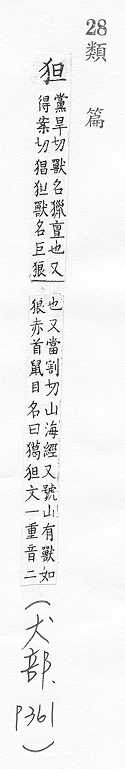 28
類篇
狚
黨旱切獸名獵亶也又
得案切猖狚獸名巨狼
也又當割切山海經又號山有獸如
狼赤首鼠目名曰獦狚文一重音二
(犬部. P361)